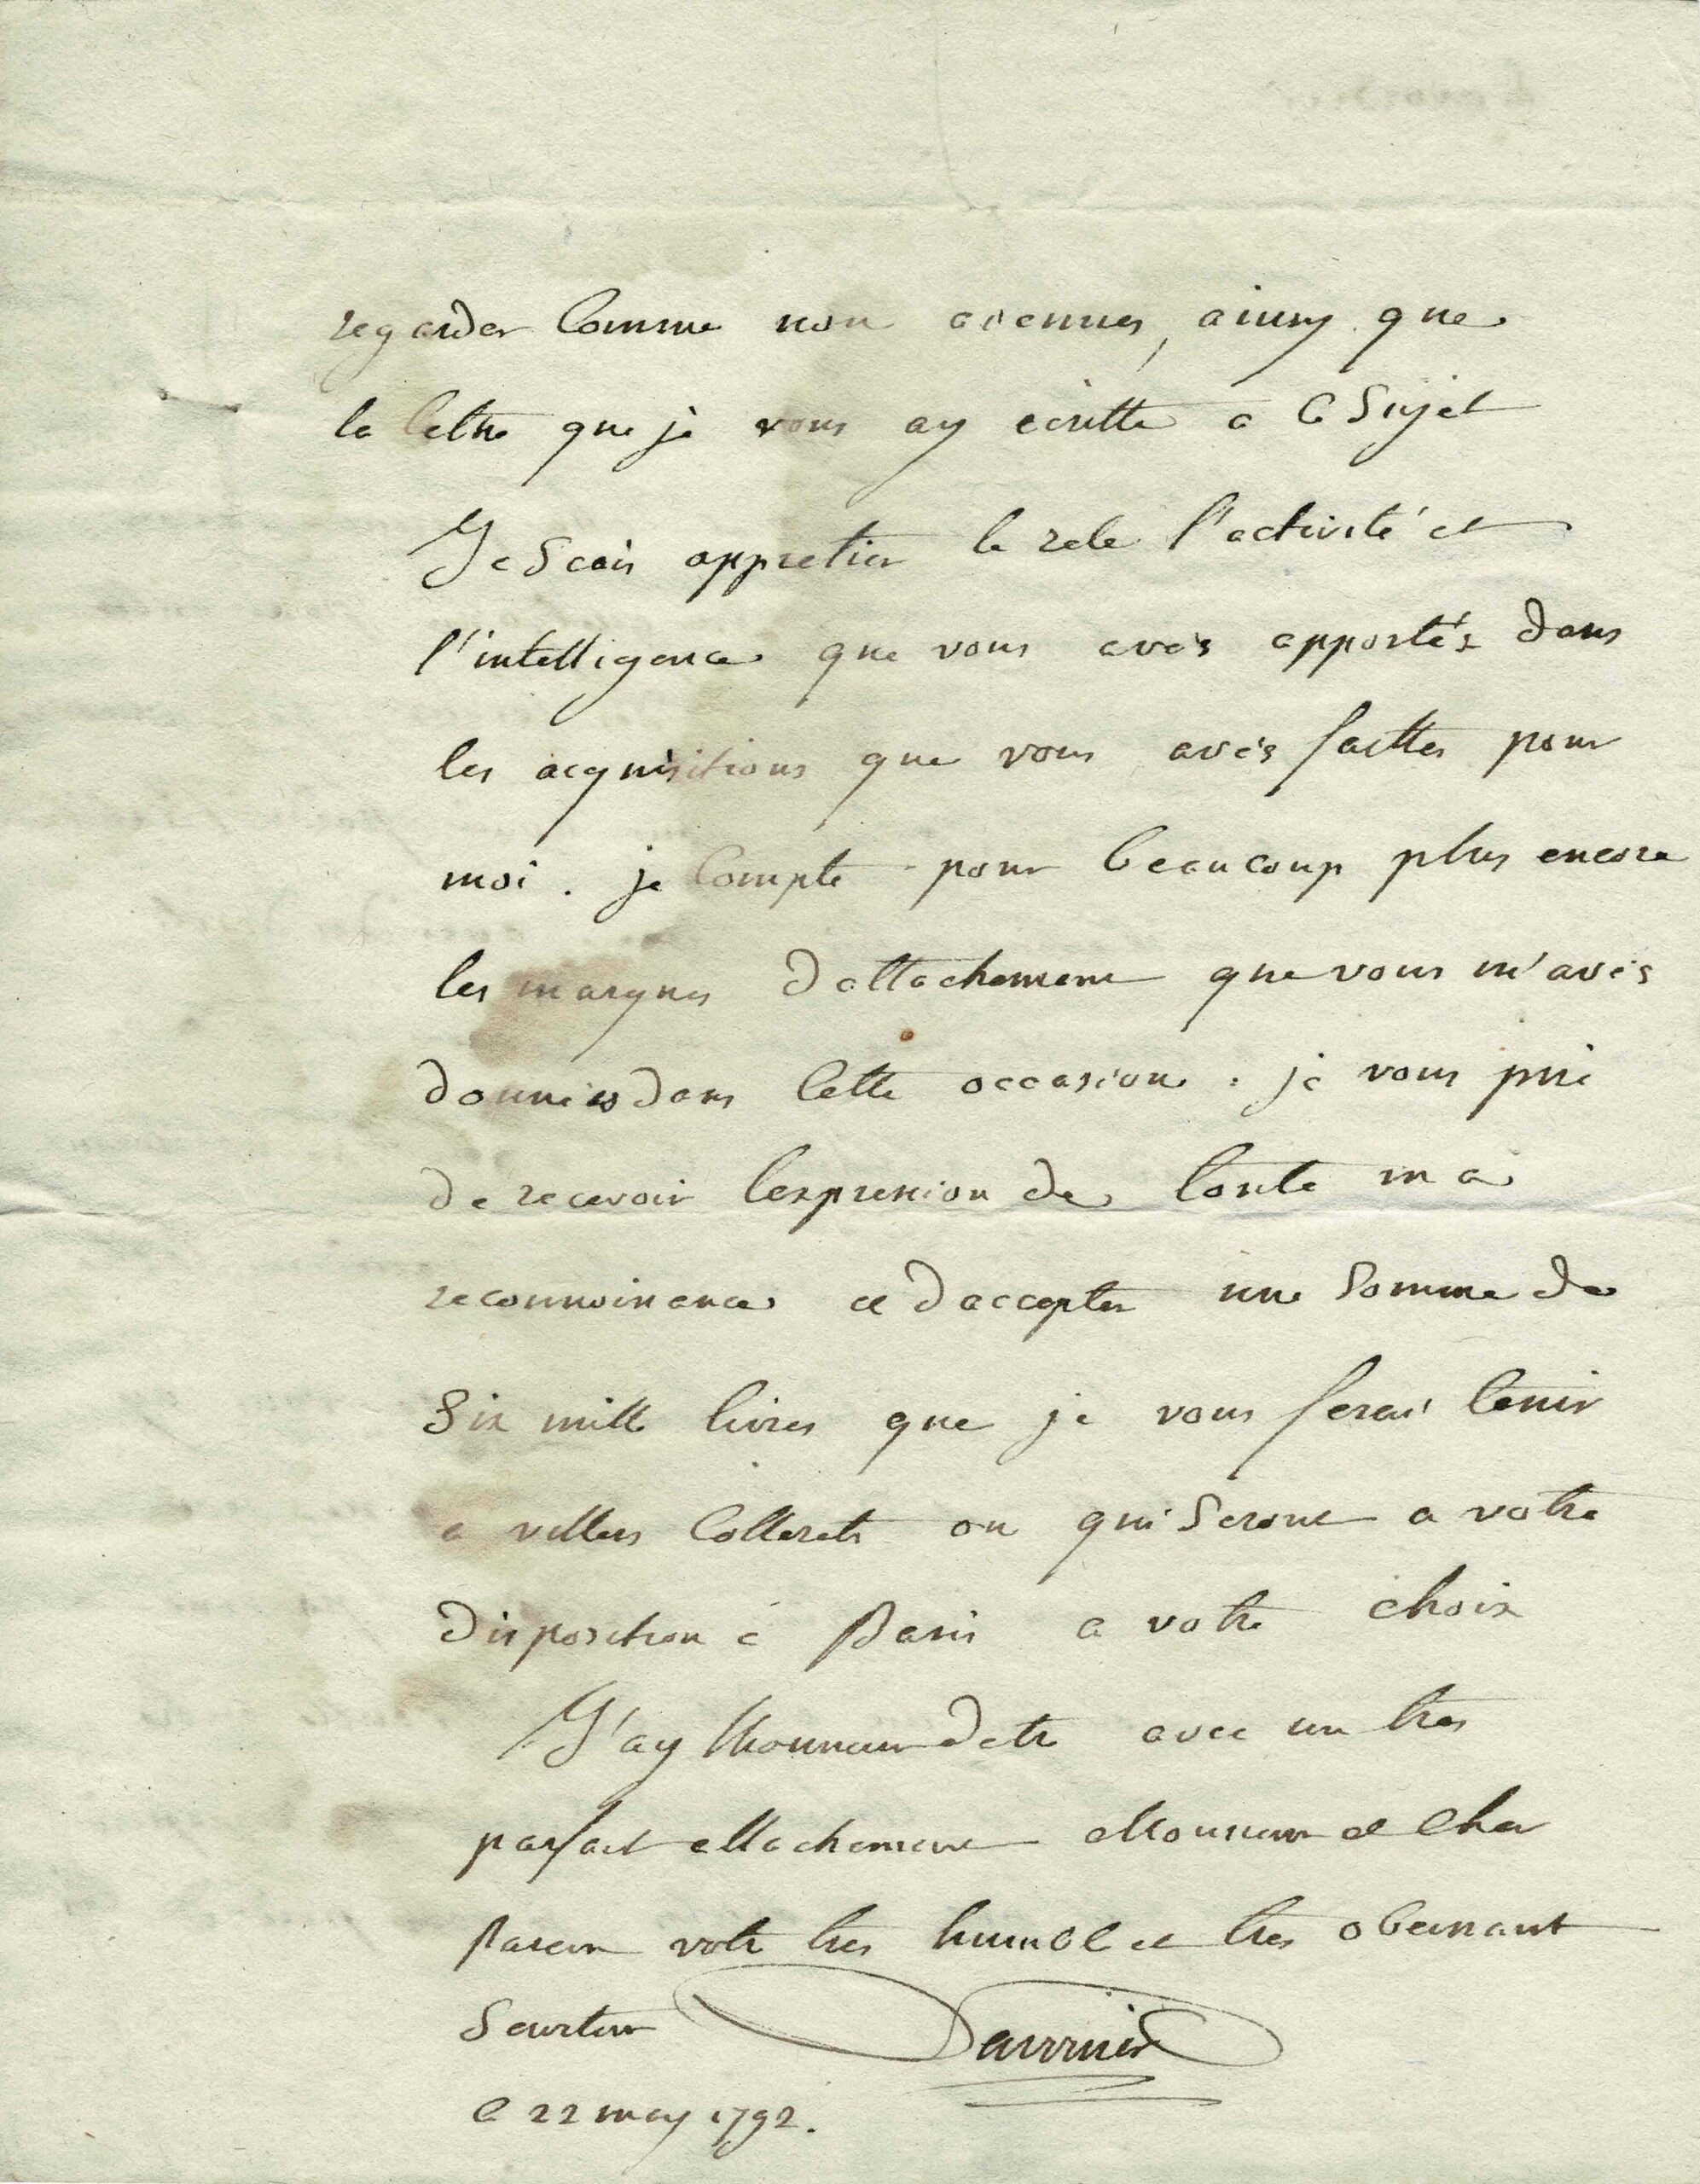 regarder Comme non avenues, ainsy que
la lettre que je vous ay écritte a Ce Sujet
Je Scais appretier le zele l'activité et
l'intelligence que vous avés apportés dans
les acquisitions que vous avés faittes pour
moi. je Compte pour beaucoup plus encore
les marques d'attachement que vous m'avés
données dans Cette occasion. je vous prie
de recevoir l'expression de toute ma
reconnoissance et d'accepter une Somme de
Six mille livres que je vous ferai tenir
a villers Collerets ou qui Seront a votre
disposition a Paris a votre choix
J'ay lhonneur detre avec un tres
parfait attachement Monsieur et Cher
Parein votre tres humble et tres obeissant
Serviteur
le 22 may 1792.